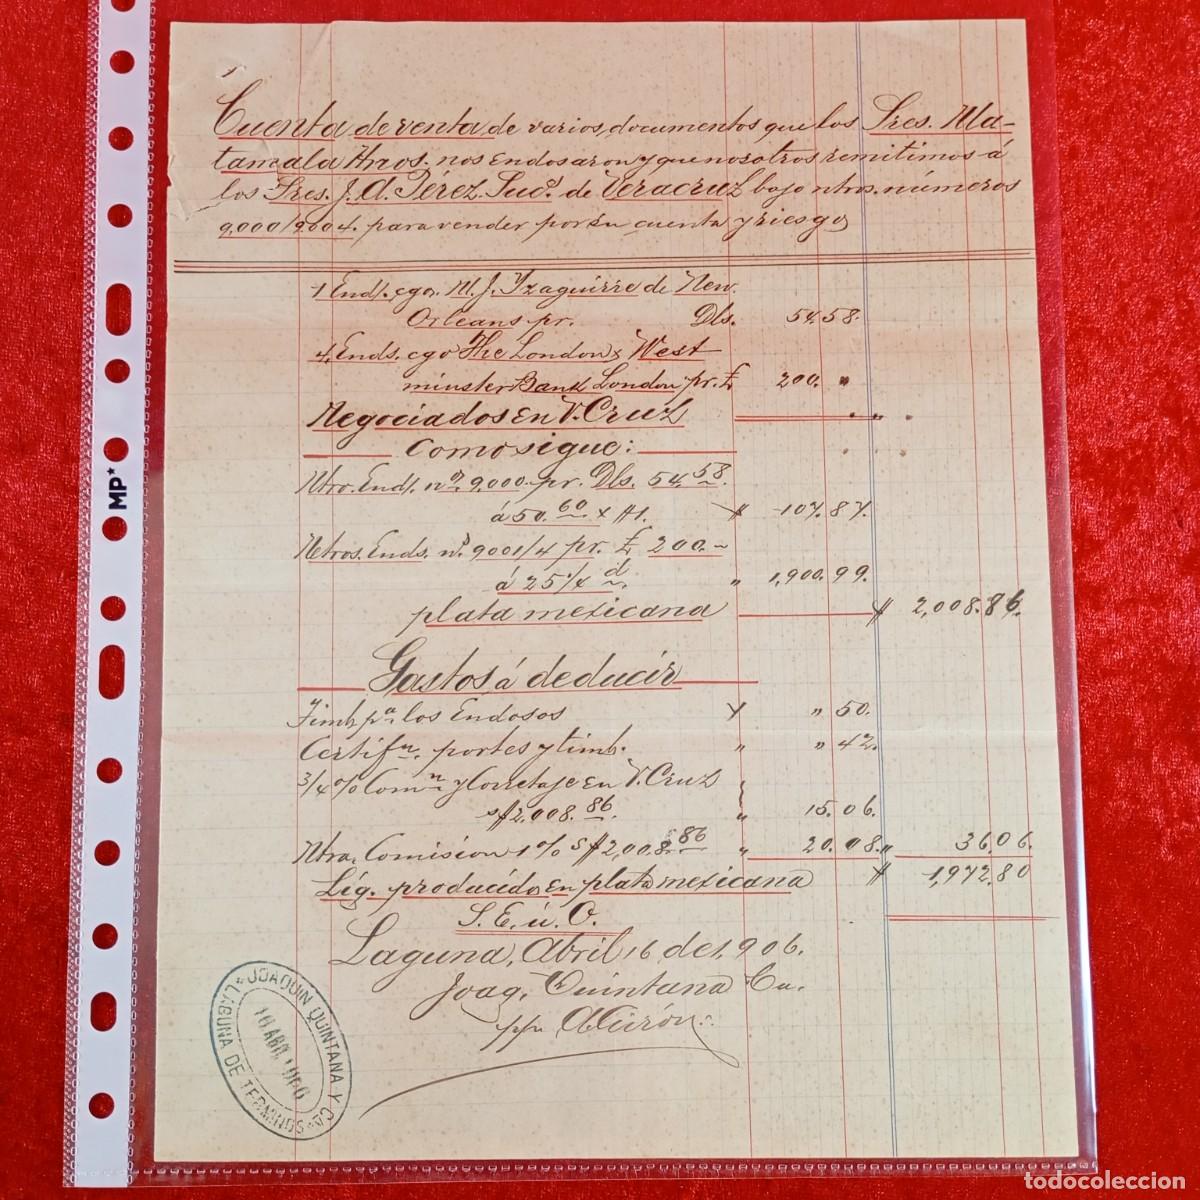 Cuenta de venta de varios documentos que los Sres. Ma-
tamala Hnos. nos endosaron y que nosotros remitimos á
los Sres. J. A. Pérez Sucs. de Veracruz bajo ntros. números
9,000/9004. para vender por su cuenta y riesgo
1 Endt. cgo. M. J. Yzaguirre de New
Orleans pr. Dls. 54.58.
4 Ends. cgo The London & West
minster Bank London pr. £ 200. "
Negociados en V. Cruz
como sigue:
Ntro. Endt. no. 9,000 pr. Dls. 54.58.
á 50.60 $ 107.87.
Ntros. Ends. ns. 9001/4 pr. £ 200.—
á 25 1/4 d " 1,900.99.
plata mexicana $ 2,008.86.
Gastos á deducir
Timb. pa. los Endosos $ " 50.
Certifn. portes y timb. " " 42.
3/4 % Comn. y Corretaje en V. Cruz
s/$ 2,008.86. " 15.06.
Ntra. Comision 1 % s/$ 2,008.86 " 20.08 " 36.06.
Liq. producido en plata mexicana $ 1,972.80
S. E. ú O.
Laguna, Abril 16 de 1,906.
Joaq. Quintana Ca.
ppa
JOAQUIN QUINTANA Y CA.
16 ABR. 1906
LAGUNA DE TERMINOS
MP*
todocoleccion